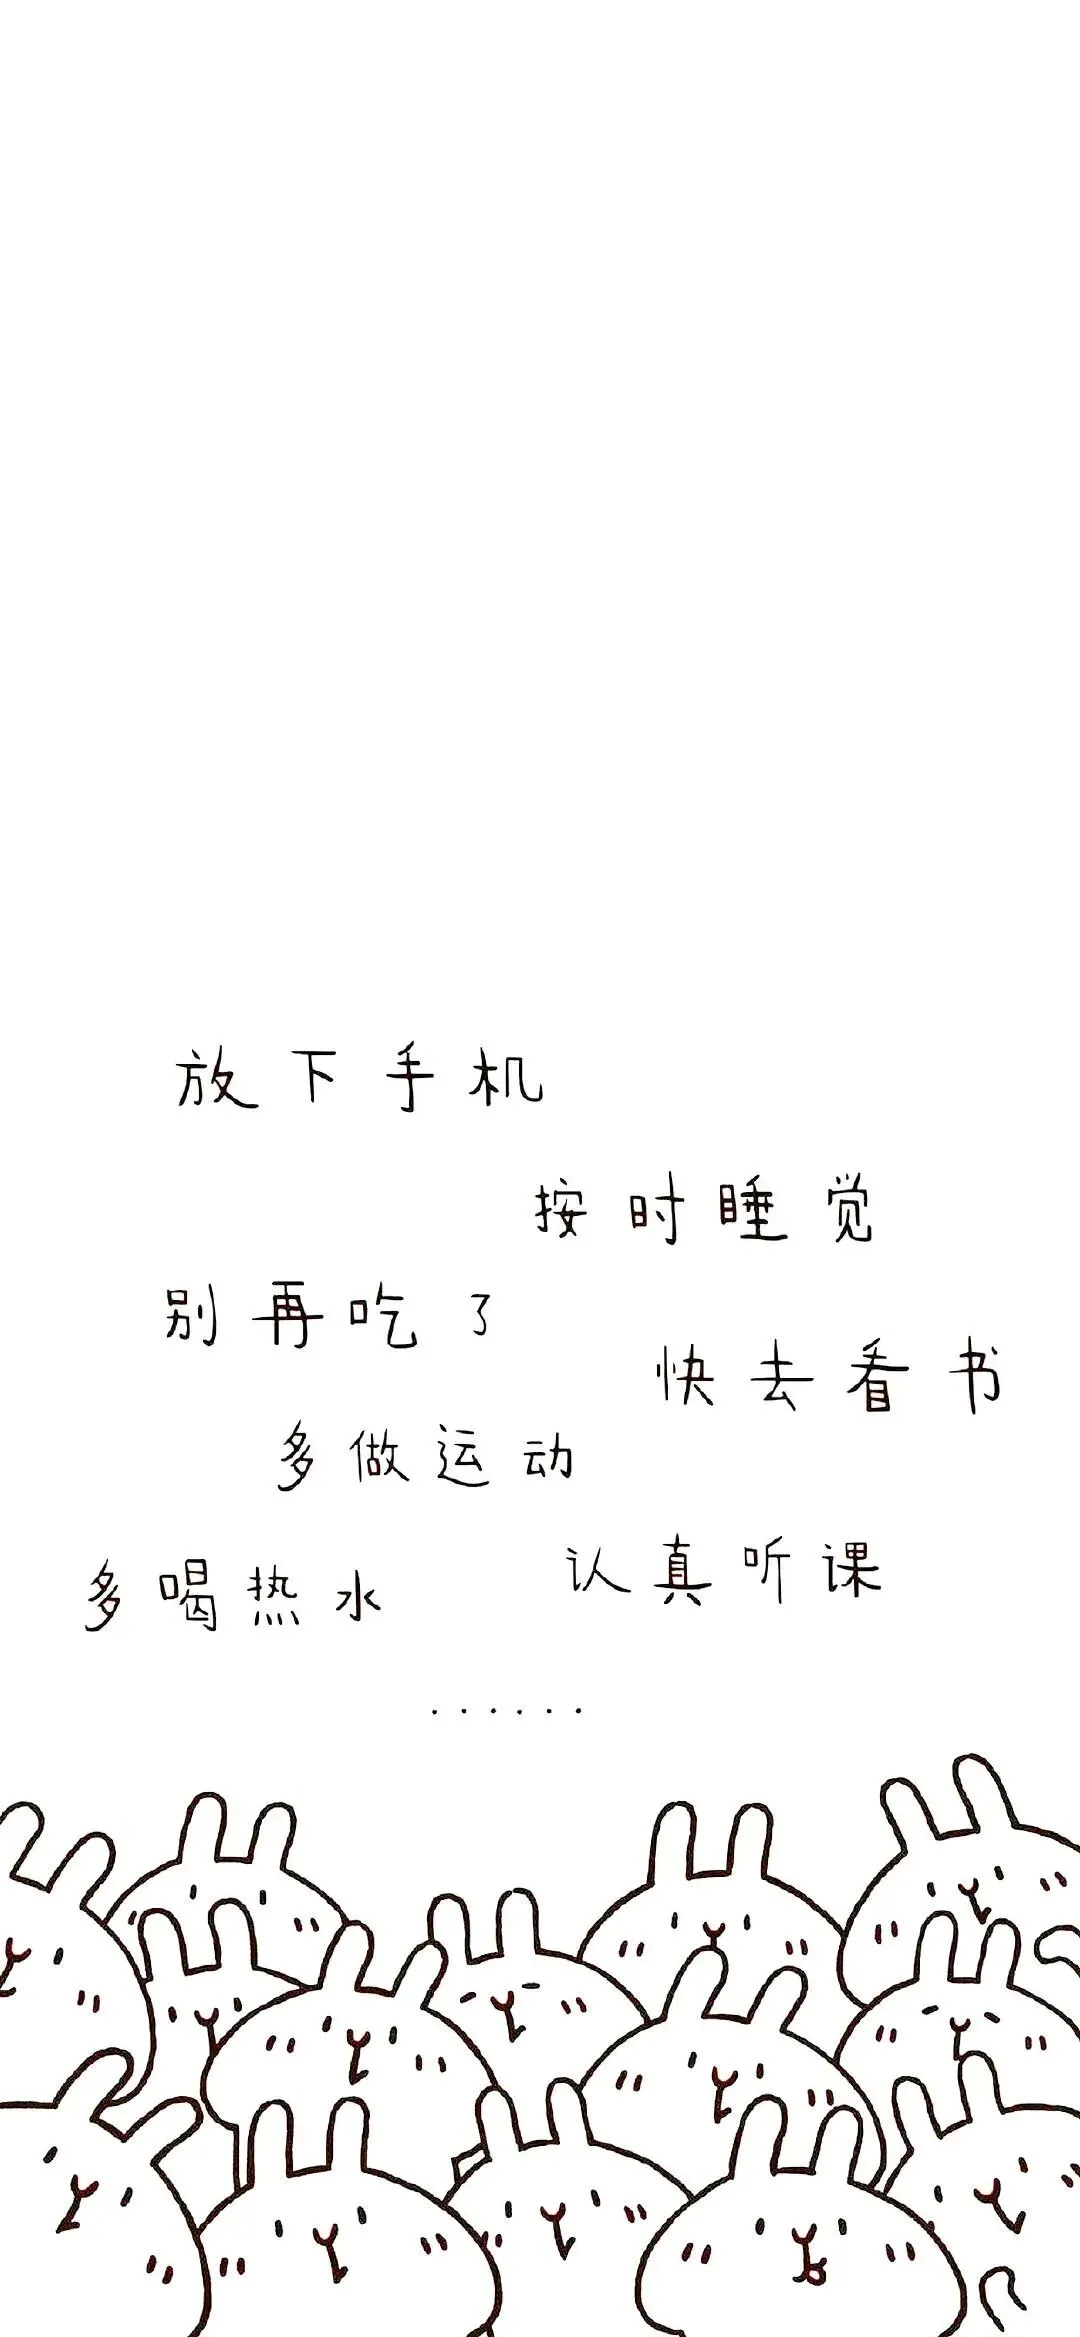 放下手机
按时睡觉
别再吃了
快去看书
多做运动
认真听课
多喝热水
······